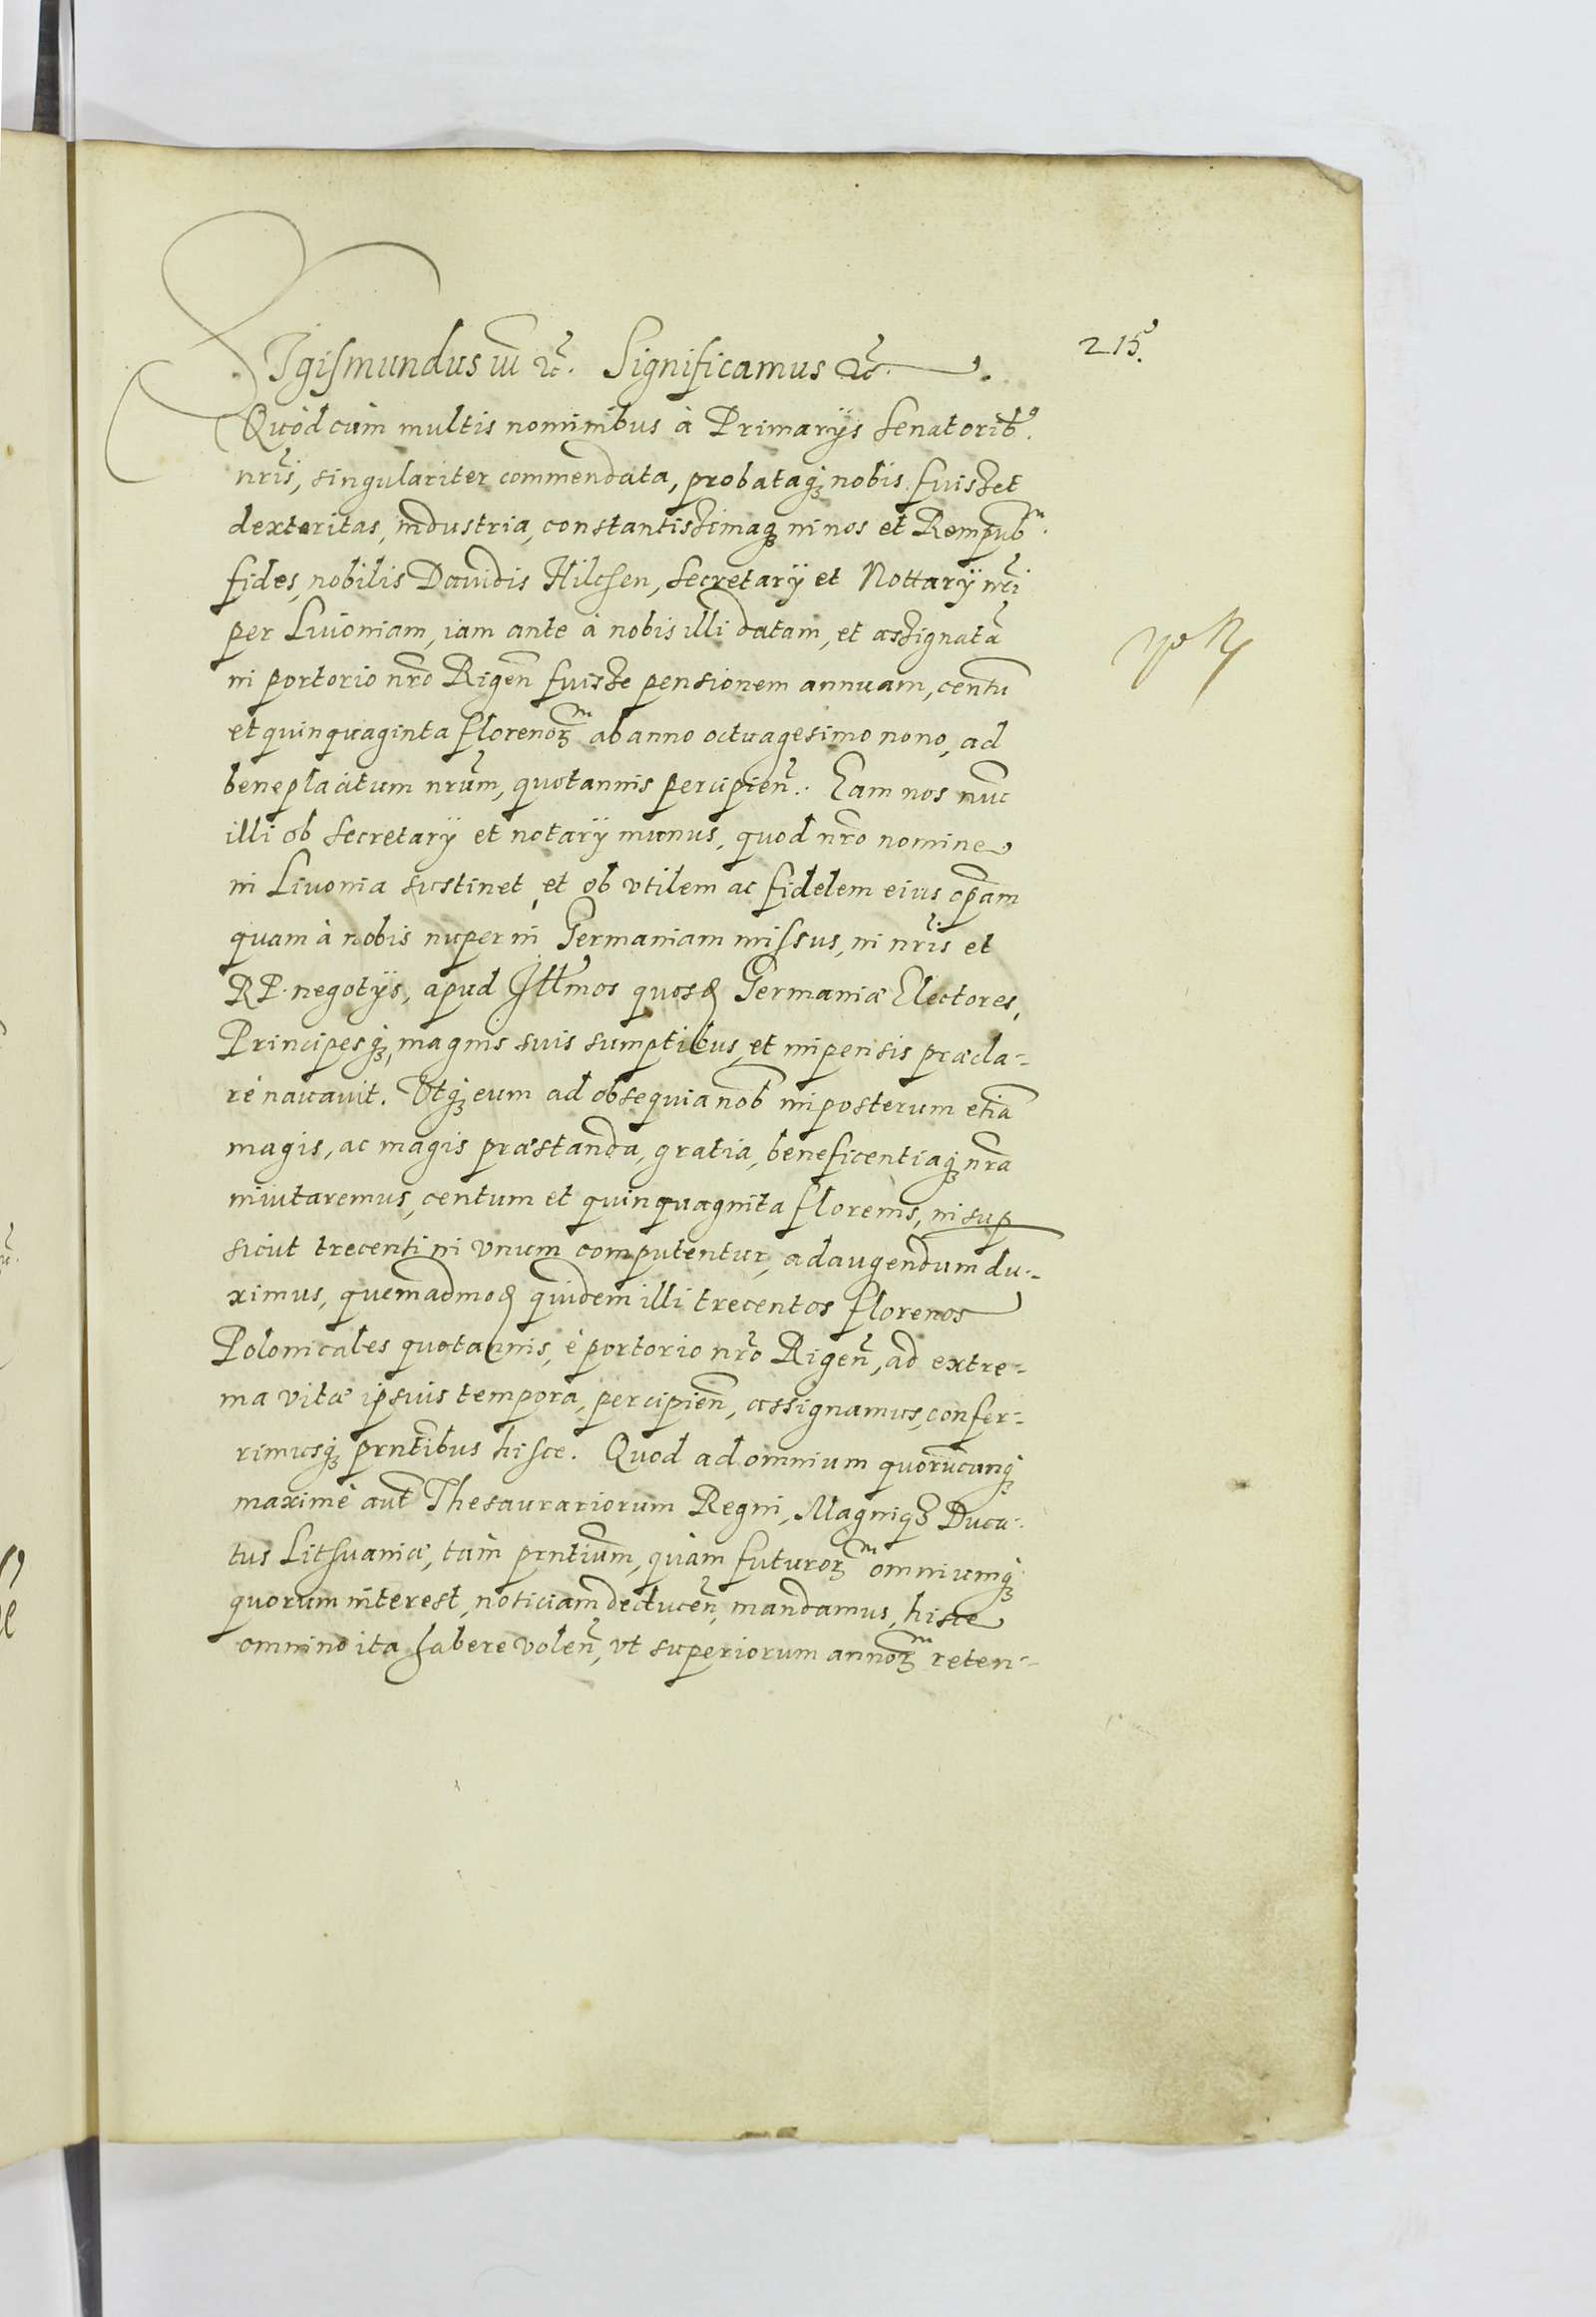 215.
Sigismundus iii etc. Significamus etc.
Quòd cùm multis nominibus à Primarijs Senatorib9.
nr̃is, singulariter commendata, probataq3 nobis fuisset
dexteritas, industria, constantissimaq3 in nos et Rempubm.
fides, nobilis Dauidis Hilchen, Secretarij et Nottarij nr̃i
per Liuoniam, iam ante à nobis illi datam, et assignatã
in portorio nr̃o Rigeñ fuisse pensionem annuam, centũ
et quinquaginta florenor̃m ab anno octuagesimo nono, ad
beneplacitum nr̃um, quotannis percipieñ. Eam nos nũc
illi ob Secretarij et notarij munus, quod nr̃o nomine
in Liuonia sustinet, et ob vtilem ac fidelem eius op̃am
quam à nobis nuper in Germaniam missus, in nr̃is et
RP. negotijs, apud Illmos quosd Germaniæ Electores,
Principesq3, magnis suis sumptibus, et impensis præcla-
rè nauauit. Vtq3 eum ad obsequia nob̃ imposterum etiã
magis, ac magis præstanda, gratia, beneficentiaq3 nr̃a
inuitaremus, centum et quinquaginta florenis, insup
sicut trecenti in vnum computentur, adaugendum du-
ximus, quemadmod quidem illi trecentos florenos
Polonicales quotannis, è portorio nr̃o Rigeñ, ad extre-
ma vitæ ipsius tempora, percipieñ, assignamus, confer-
rimusq3 prñtibus hisce. Quod ad omnium quorũcunq3
maximè aut̃ Thesaurariorum Regni, Magniq3 Duca-
tus Lithuaniæ, tàm prñtium, quàm futuror̃m omniumq3
quorum interest, noticiam deduceñ, mandamus, hisce
omnino ita habere voleñ, vt superiorum annor̃m reten-